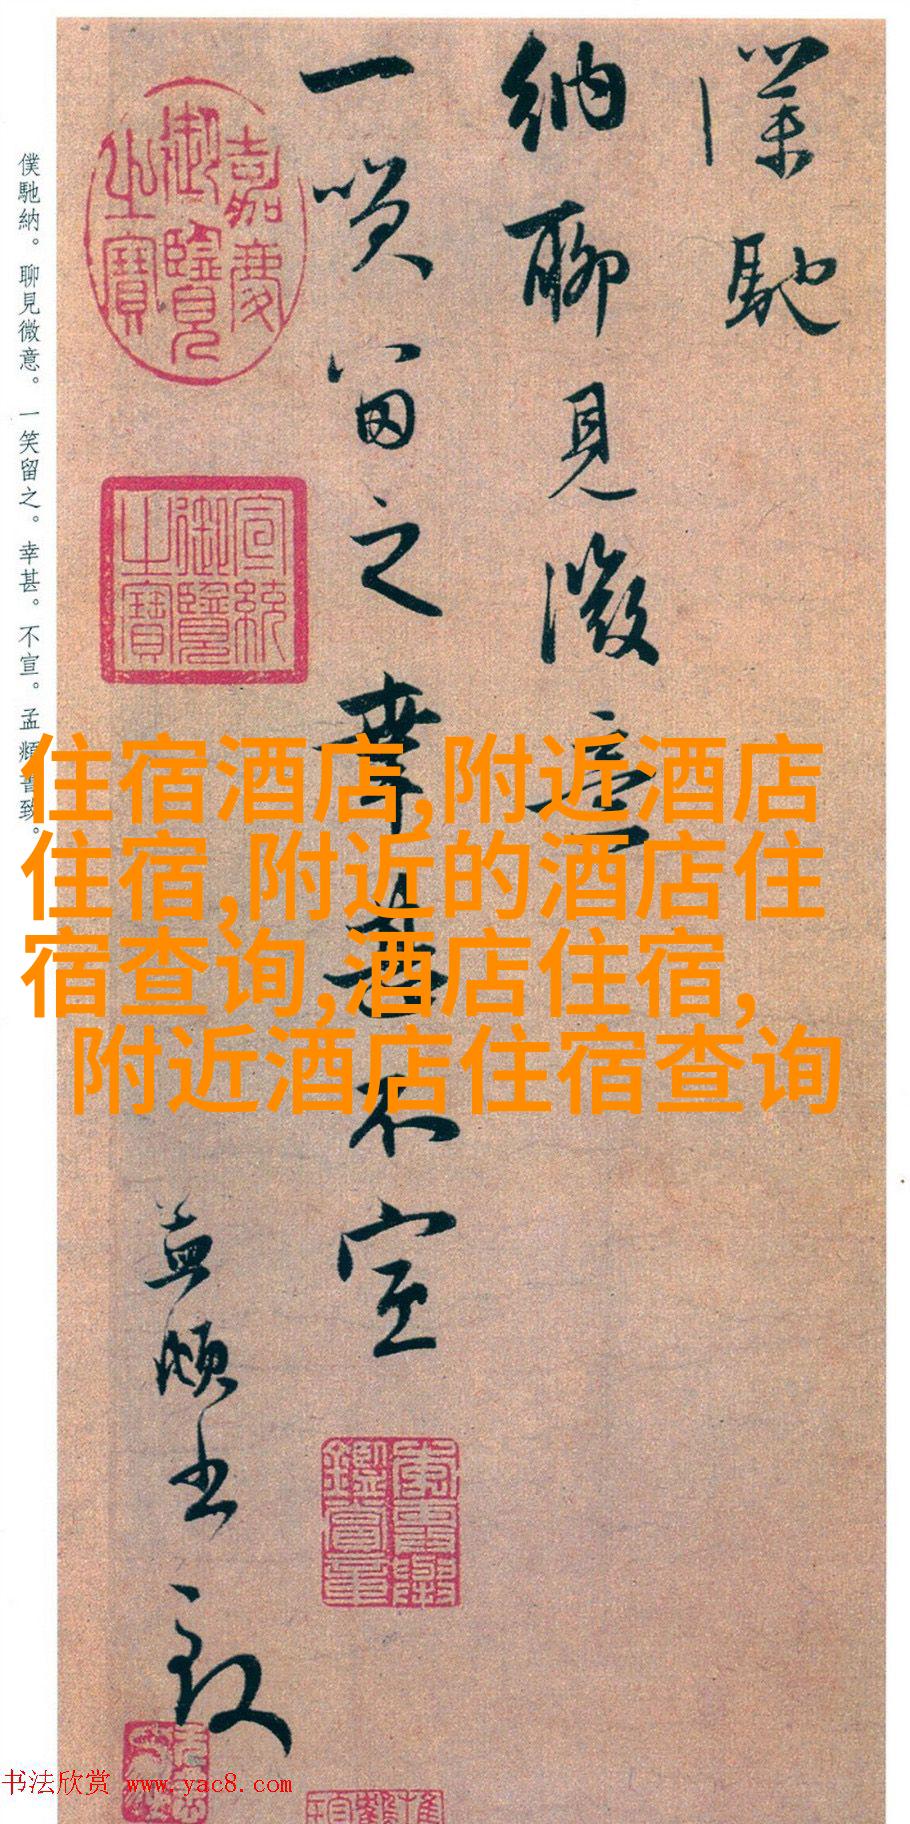 僕馳
納聊見微意
一笑留之幸甚不宣
孟頫書致
嘉慶
御覽
之寶
宣統
御覽
之寶
僕馳納。聊見微意。一笑留之。幸甚。不宣。孟頫書致。
住宿酒店,附近酒店
住宿,附近的酒店住
宿查询,酒店住宿,
附近酒店住宿查询
书法欣赏 www.yac8.com